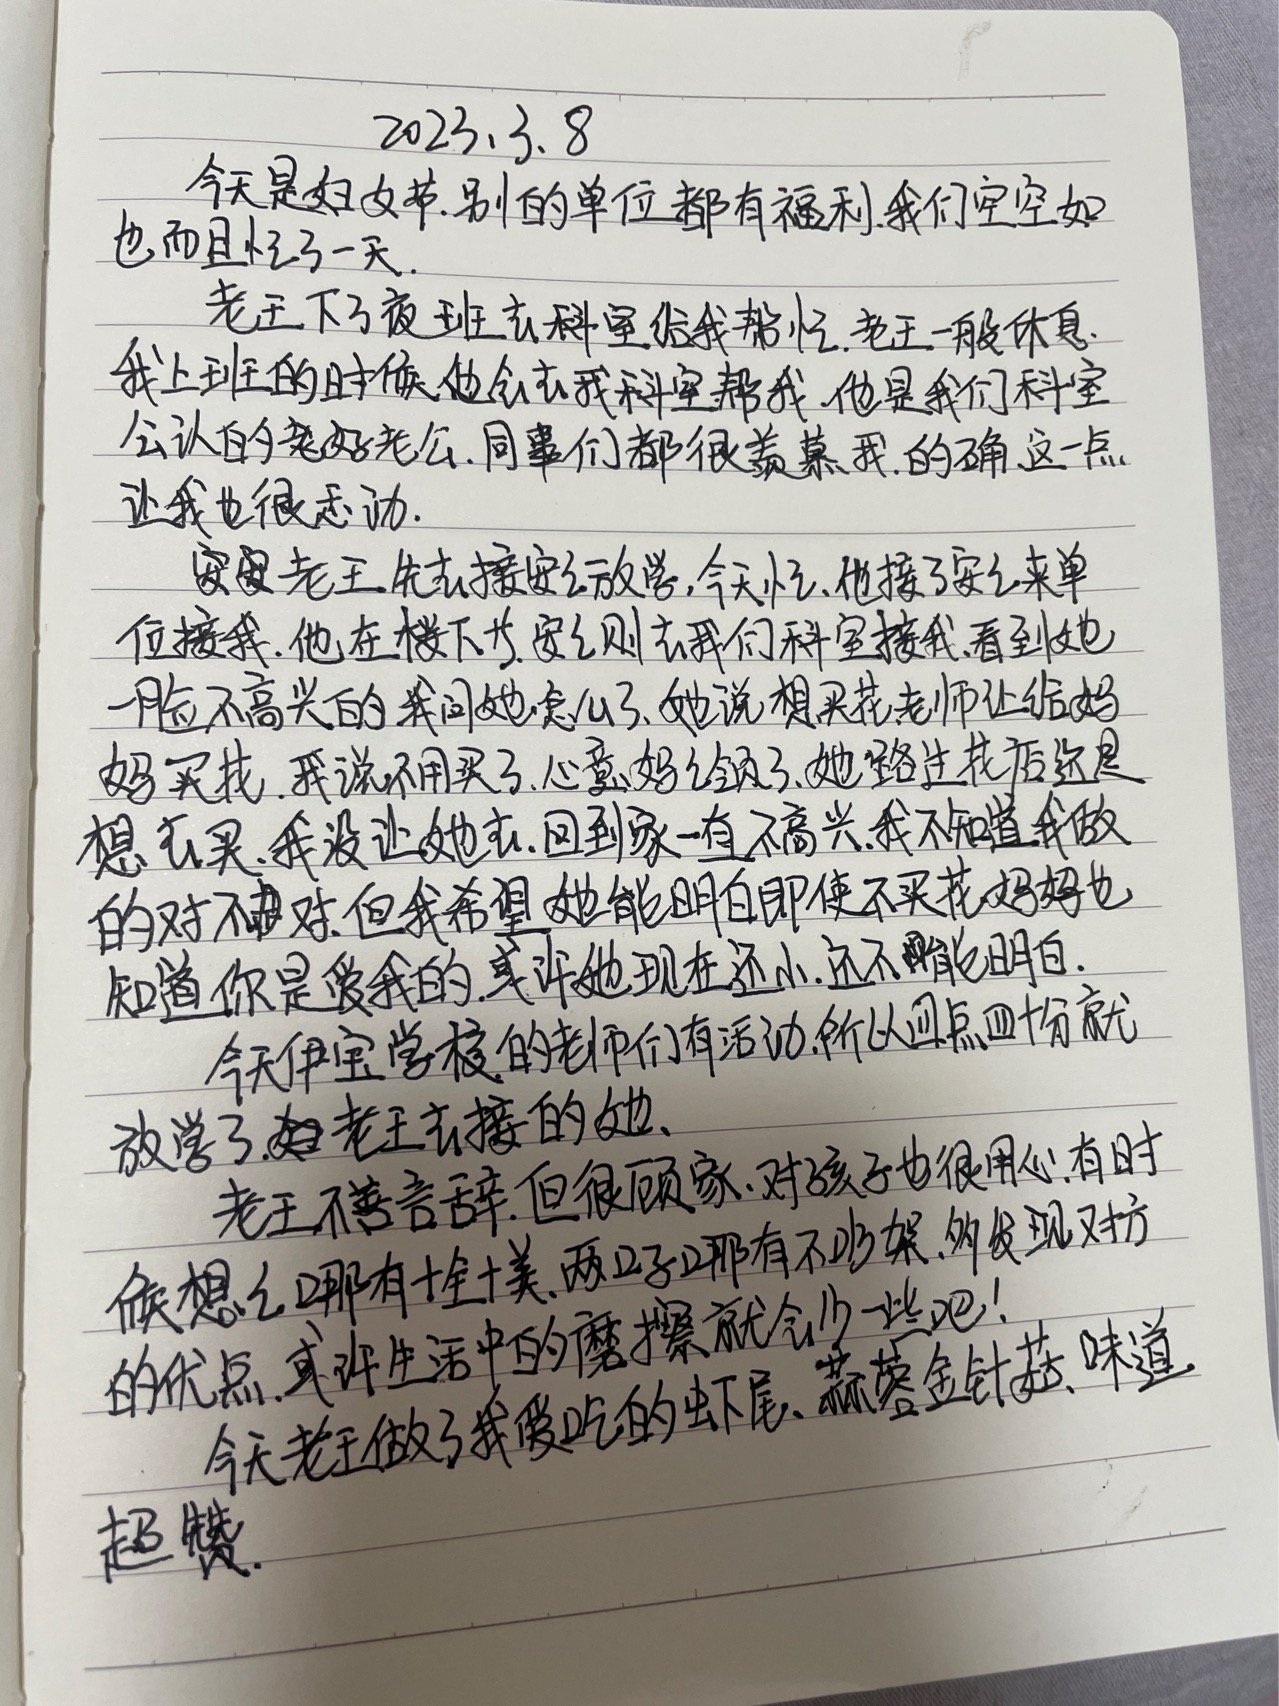 2023.3.8
今天是妇女节.别的单位都有福利.我们空空如
也而且忙了一天.
老王下了夜班去科室给我帮忙.老王一般休息.
我上班的时候他会去我科室帮我.他是我们科室
公认的好老公.同事们都很羡慕我.的确.这一点
让我也很感动.
老王先去接安安放学,今天忙.他接了安安来单
位接我.他在楼下等.安安则去我们科室接我.看到她
一脸不高兴的我问她怎么了.她说想买花.老师让给妈
妈买花.我说不用买了.心意妈妈领了.她路过花店还是
想去买.我没让她去.回到家一直不高兴.我不知道我做
的对不对.但我希望她能明白即使不买花.妈妈也
知道你是爱我的.或许她现在还小.还不能明白.
今天伊宝学校的老师们有活动.所以四点四十分就
放学了.老王去接的她、
老王不善言辞.但很顾家.对孩子也很用心.有时
候想想哪有十全十美.两口子哪有不吵架.多发现对方
的优点.或许生活中的磨擦就会少一些吧!
今天老王做了我爱吃的虾尾、蒜蓉金针菇、味道
超赞.